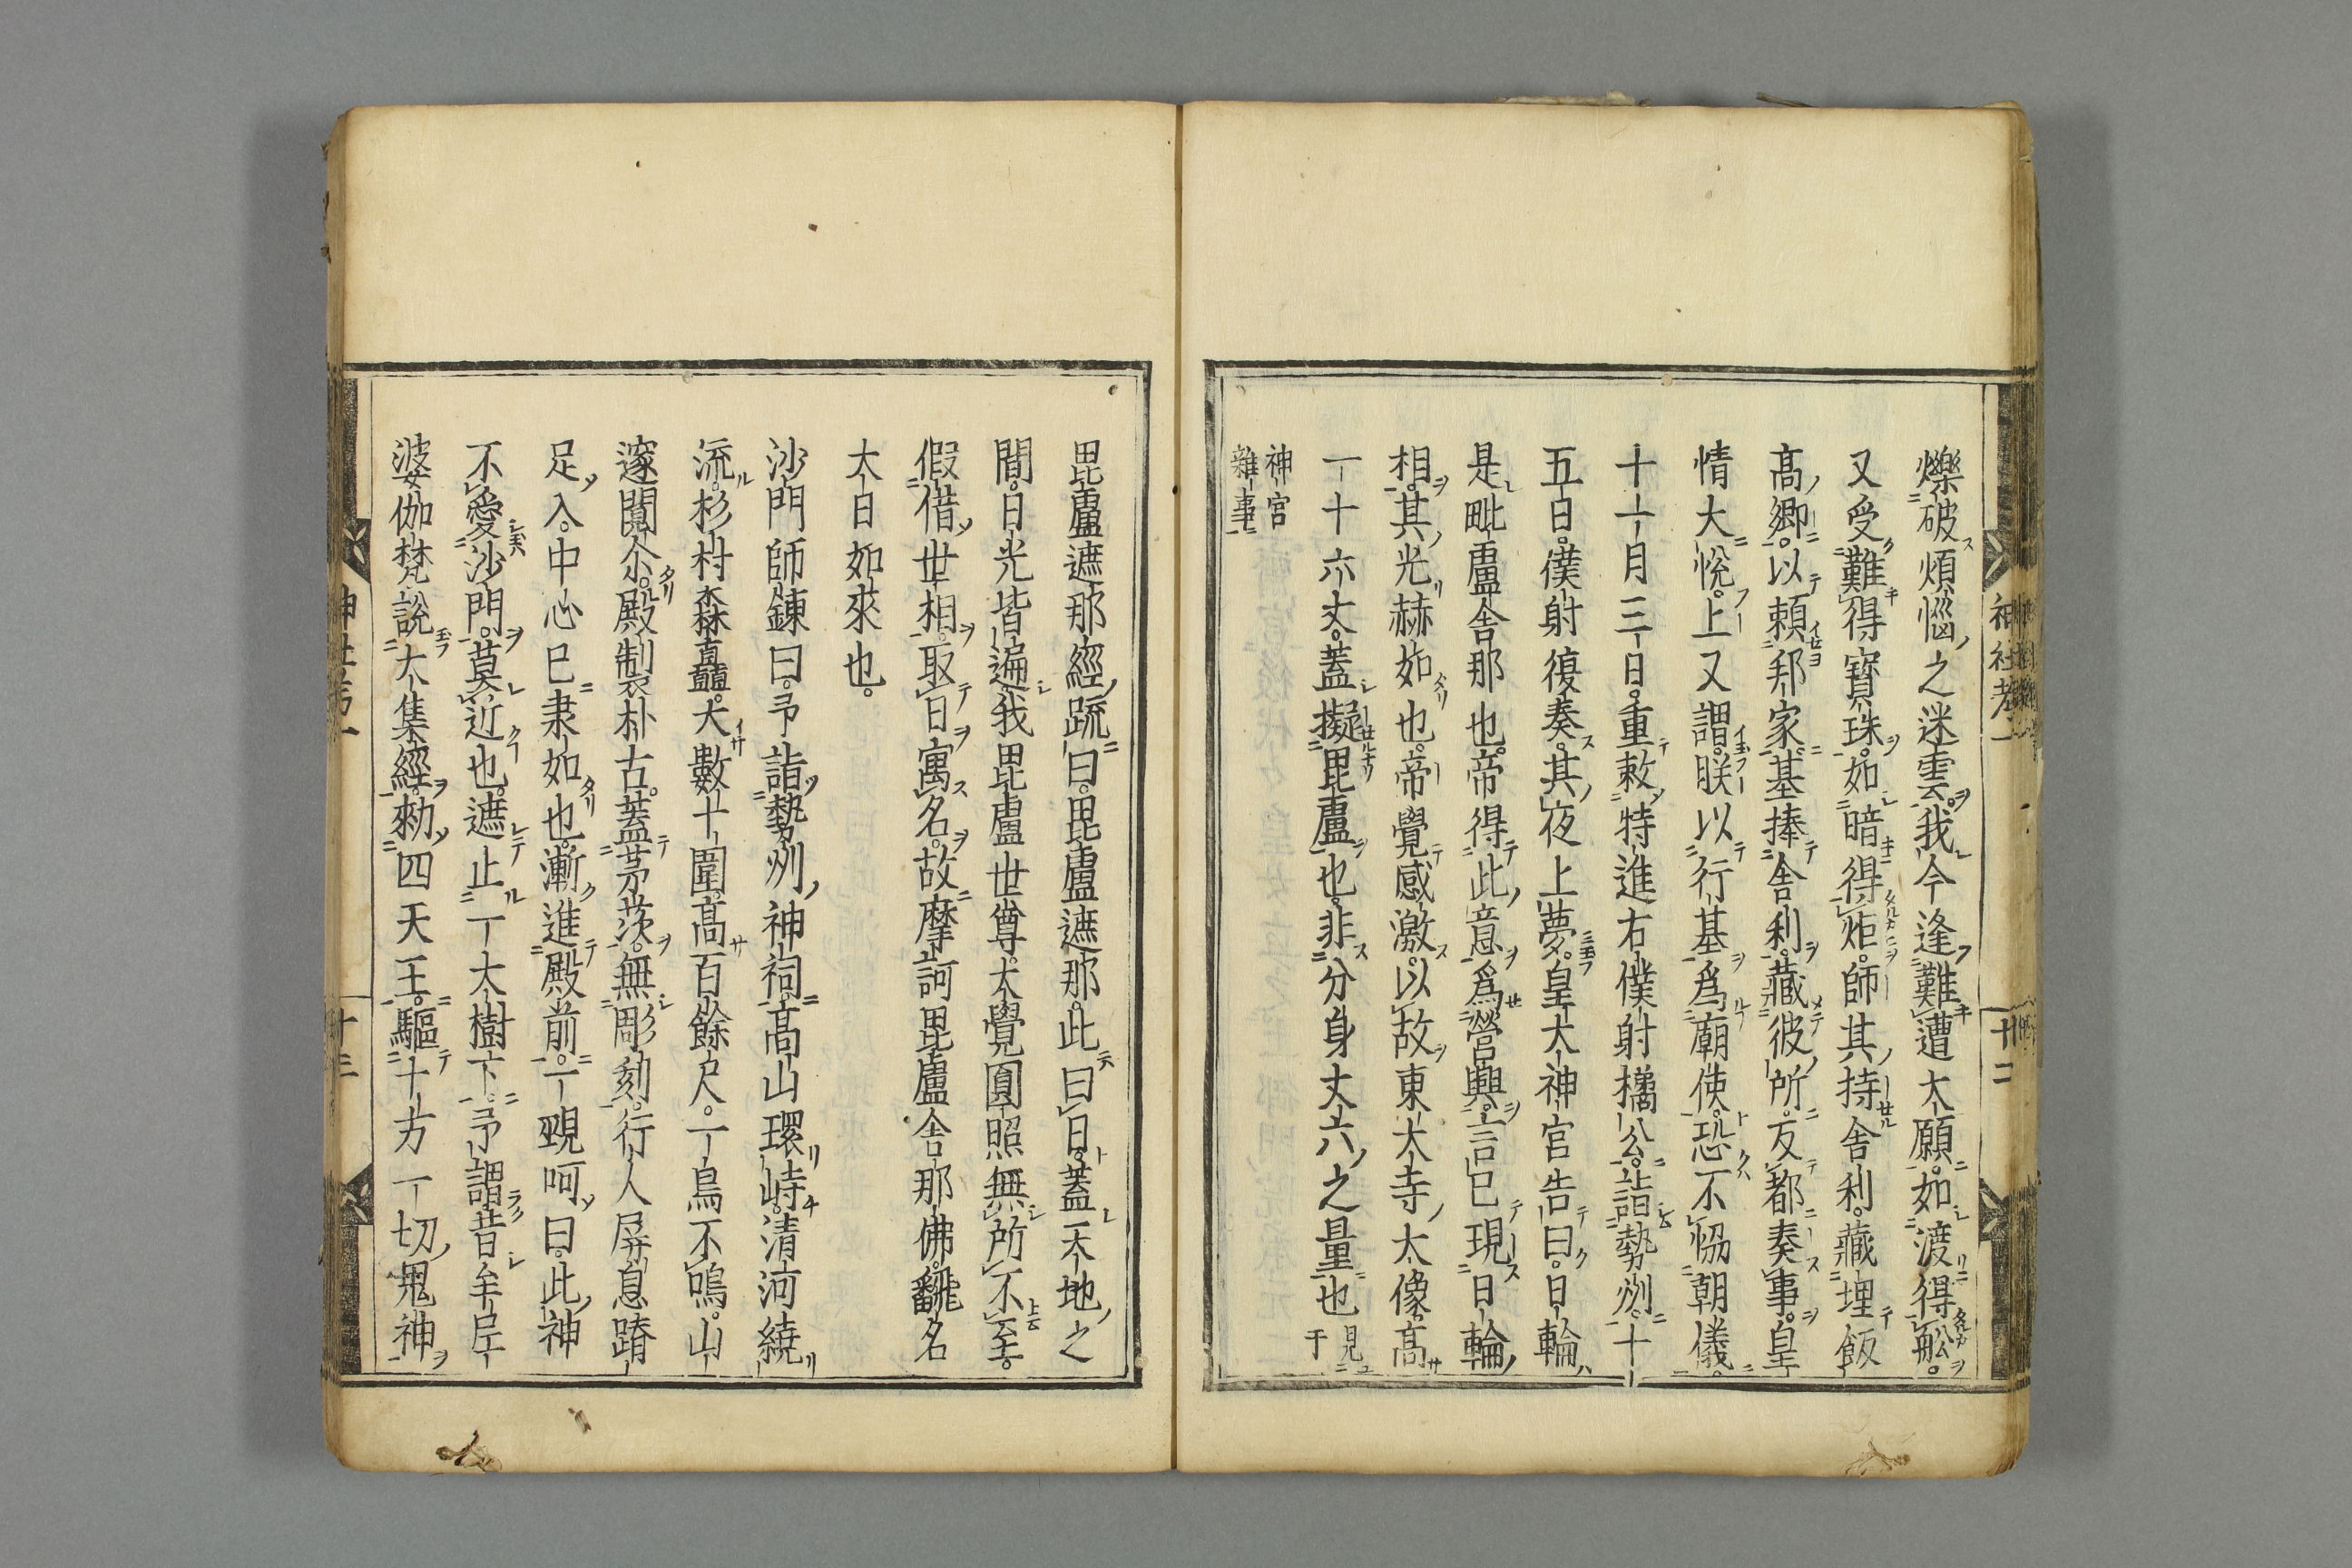 爍破煩惱之迷雲我今逢難遭大願如渡得舩
又受難得寳珠如暗得炬師其持舎利藏埋飯
髙郷以頼邦家基捧舎利藏彼所反都奏事皇
情大悅上又謂朕以行基爲廟使恐不恊朝儀
十一月三日重敕特進右僕射橘公詣勢州十
五日僕射復奏其夜上夢皇大神宮告曰日輪
是毗盧舎那也帝得此意爲營興言已現日輪
相其光赫如也帝覺感激以故東大寺大像髙
一十六丈蓋擬毘盧也非分身丈六之量也見于
神宮雜事
神社考一
十二
毘盧遮那經疏曰毘盧遮那此曰日蓋天地之
間日光皆遍我毘盧世尊大覺圓照無所不至
假借世相取日寓名故摩訶毘盧舎那佛翻名
大日如來也
沙門師錬曰予詣勢州神祠髙山環峙清河繞
流杉村森矗大數十圍髙百餘尺一鳥不鳴山
邃闃尒殿制朴古蓋茅茨無彫刻行人屏息蹐
足入中心已肅如也漸進殿前一覡呵曰此神
不愛沙門莫近也遮止一大樹下予謂昔牟尼
婆伽梵說大集經勑四天王驅十方一切鬼神
十三